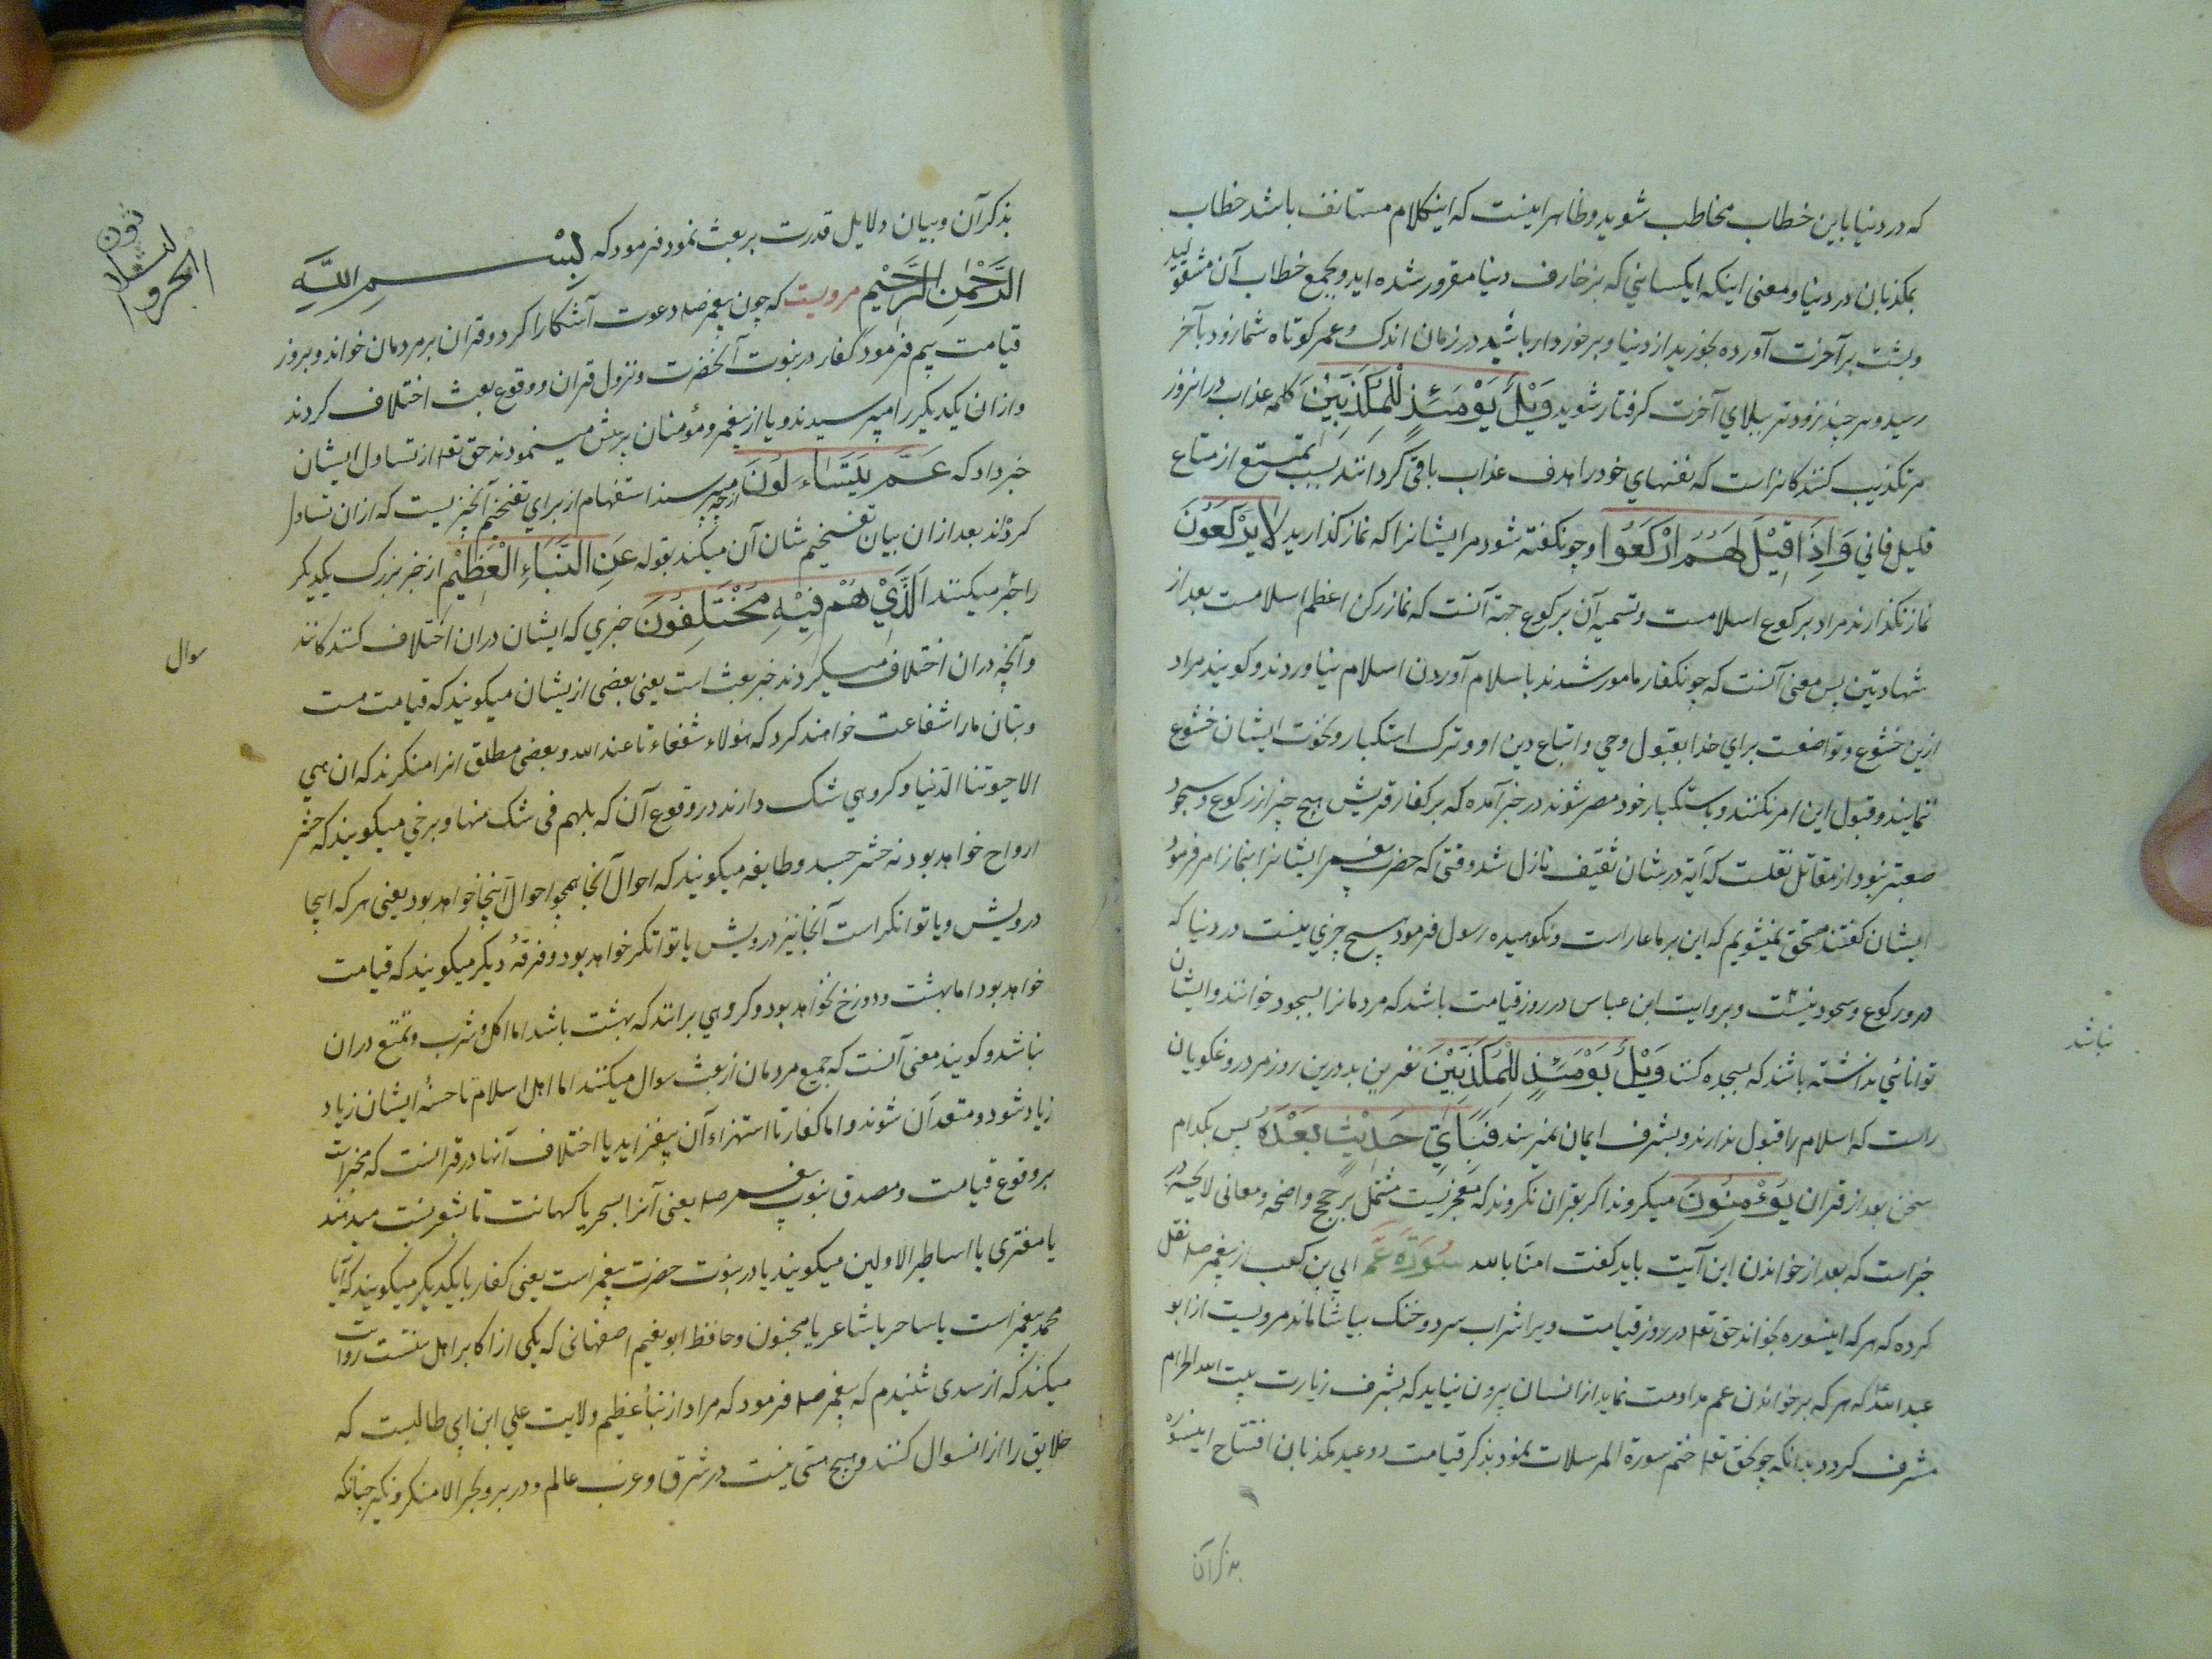 که در دنیا باین خطاب مخاطب شوید و ظاهر اینست که اینکلام مستانف باشد خطاب
بمکذبان در دنیا و معنی اینکه ایکسانی که بزخارف دنیا مغرور شده اید و بجمع خطاب آن مشغولید
و پشت بر آخرت آورده بخورید از دنیا و برخوردار باشید در زمان اندک و عمر کوتاه شما زود بآخر
رسید و هر چند زودتر ببلای آخرت گرفتار شوید وَيْلٌ يَوْمَئِذٍ لِلْمُكَذِّبِيْنَ کلمه عذاب در انروز
مر تکذیب کنندکانراست که نفنهای خود را هدف عذاب باقی گردانند بسبب تمتع از متاع
قلیل فانی وَاِذَا قِيْلَ لَهُمُ ارْكَعُوا و چونکفته شود مر ایشانرا که نماز کذارید لَا يَرْكَعُوْنَ
نماز نکذارند مراد برکوع اسلامست و تسمیه آن برکوع جهة آنست که نماز رکن اعظم اسلامست بعد از
شهادتین پس معنی آنست که چونکفار مامور شدند باسلام آوردن اسلام نیاوردند و کویند مراد
ازین خشوع و تواضعست برای خدا بقبول وحی و اتباع دین او و ترک استکبار و نخوت ایشان خشوع
ننمایند و قبول این امر نکنند و باستکبار خود مصر شوند در خبر آمده که بر کفار قریش هیچ چیز از رکوع و سجود
صعبتر نبود از مقاتل نقلست که آیة در شان ثقیف نازل شد وقتی که حضرت پیغمبر ایشانرا بنماز امر فرمود
ایشان کفتند منحنی نمیشویم که این بر ما عار است و نکوهیده رسول فرمود هیچ چیزی نیست در دنیا که
درو رکوع و سجود نیست و بروایت ابن عباس در روز قیامت باشد که مردمانرا بسجود خوانند و ایشان
توانائی نداشته باشد که سجده کنند وَيْلٌ يَوْمَئِذٍ لِلْمُكَذِّبِيْنَ نفرین بد درین روز مر دروغکویان
راست که اسلام را قبول ندارند و بشرف ایمان نمیرسند فَبِاَيِّ حَدِيْثٍ بَعْدَهُ پس بکدام
سخن بعد از قران يُوْءْمِنُوْنَ میکروند اکر بقران نکروند که معجزیست مشتمل بر حجج واضحه و معانی لایحه در
خبر است که بعد از خواندن این آیت باید کفت امنا بالله سُورَة عَمَّ ابی بن کعب از پیغمبر صلعم نقل
کرده که هر که اینسوره بخواند حق تعه در روز قیامت ویرا شراب سرد و خنک بیاشاماند مرویست از ابو
عبد الله که هر که بر خواندن عم مداومت نماید از انسان بیرون نیاید که بشرف زیارت بیت الله الحرام
مشرف کردد بدانکه چونحق تعه ختم سورة المرسلات نمود بذکر قیامت و وعید مکذبان افتتاح اینسوره
بذکر آن
نباشد
بذکر آن و بیان دلایل قدرت بر بعث نمود فرمود که بِسْمِ اللّٰهِ
الرَّحْمٰنِ الرَّحِيْمِ مرویست که چون پیغمبر صلعم دعوت آشکارا کرد و قران بر مردمان خواند و بروز
قیامت بیم فرمود کفار در نبوت آنحضرت و نزول قران و وقوع بعث اختلاف کردند
و ازان یکدیکر را میپرسیدند و یا از پیغمبر و مؤمنان پرسش مینمودند حق تعه از تساول ایشان
خبر داد که عَمَّ يَتَسَاءَلُوْنَ از چه چیز میپرسند استفهام از برای تفخیم آنخبریست که ازان تساول
کردند بعد ازان بیان تفخیم شان آن میکند بقوله عَنِ النَّبَاءِ الْعَظِيْمِ از خبر بزرک یکدیکر
را خبر میکنند اَلَّذِيْ هُمْ فِيْهِ مُخْتَلِفُوْنَ خبری که ایشان دران اختلاف کنندکانند
و آنچه دران اختلاف میکردند خبر بعث است یعنی بعضی ازیشان میکویند که قیامت هست
و بتان مارا شفاعت خواهند کرد که هؤلاء شفعاءنا عند الله و بعضی مطلق انرا منکرند که ان هی
الا حیوتنا الدنیا و کروهی شک دارند در وقوع آن که بل هم فی شک منها و برخی میکویند که حشر
ارواح خواهد بود نه حشر جسد و طایفه میکویند که احوال آنجا همچو احوال اینجا خواهد بود یعنی هر که اینجا
درویش و یا توانکر است آنجا نیز درویش یا توانکر خواهد بود و فرقهٔ دیکر میکویند که قیامت
خواهد بود اما بهشت و دوزخ نخواهد بود و کروهی برانند که بهشت باشد اما اکل و شرب و تمتع دران
نباشد و کویند معنی آنست که جمیع مردمان از بعث سوال میکنند اما اهل اسلام تا حسنهٔ ایشان زیاد
زیاد شود و مستعد آن شوند و اما کفار تا استهزاء آن بیفزاید یا اختلاف آنها در قرانست که مخبر است
بر وقوع قیامت و مصدق نبوت پیغمبر صلعم یعنی آنرا بسحر یا کهانت تا بشعر نسبت میدهند
یا مفتری یا اساطیر الاولین میکویند یا در نبوت حضرت پیغمبر است یعنی کفار با یکدیکر میکویند که آیا
محمد پیغمبر است یا ساحر یا شاعر یا مجنون و حافظ ابو نعیم اصفهانی که یکی از اکابر اهل سنتست روایت
میکند که از سدی شنیدم که پیغمبر صلعم فرمود که مراد از نبأ عظیم ولایت علی ابن ابی طالبست که
خلایق را ازان سوال کنند و هیچ میتی نیست در شرق و غرب عالم و در بر و بحر الا منکر و نکیر چنانکه
سوال